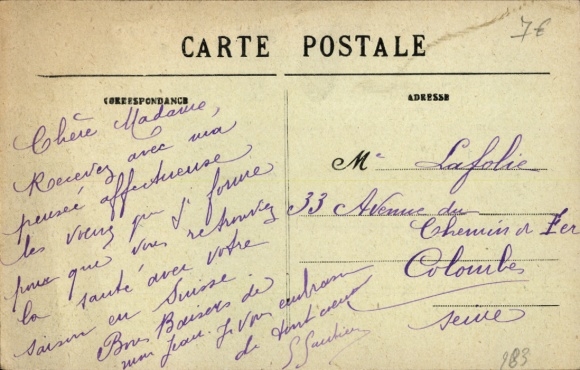 7€
CARTE POSTALE
CORRESPONDANCE
ADRESSE
Chère Madame,
Recevez avec ma
pensée affectueuse
les voeux que je forme
pour que vous retrouviez
la santé avec votre
saison en Suisse.
Bons Baisers de
mon Jean. Je vous embrasse
de tout coeur
Me Lafolie
33 Avenue du
Chemin de Fer
Colombes
Seine
983